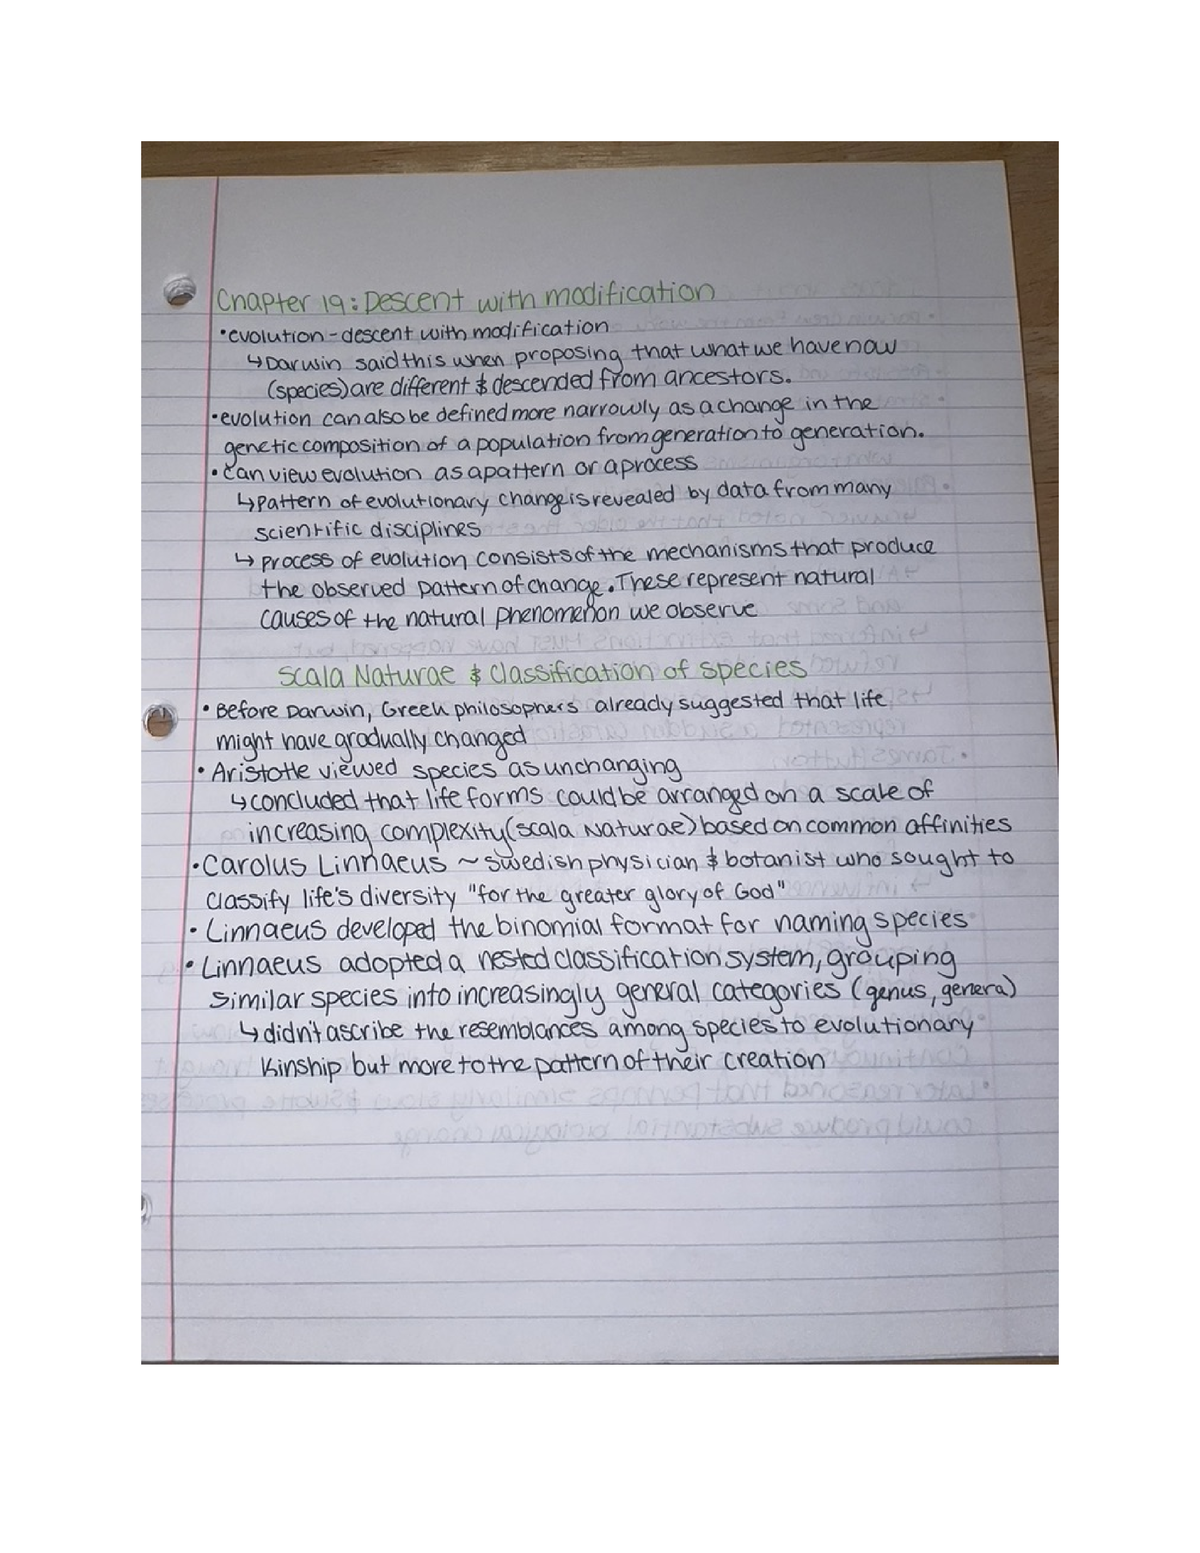 Chapter 19: Descent with modification
• evolution - descent with modification
↳ Darwin said this when proposing that what we have now
(species) are different & descended from ancestors.
• evolution can also be defined more narrowly as a change in the
genetic composition of a population from generation to generation.
• Can view evolution as a pattern or a process
↳ Pattern of evolutionary change is revealed by data from many
scientific disciplines
↳ process of evolution consists of the mechanisms that produce
the observed pattern of change. These represent natural
causes of the natural phenomenon we observe
Scala Naturae & Classification of species
• Before Darwin, Greek philosophers already suggested that life
might have gradually changed
• Aristotle viewed species as unchanging
↳ concluded that life forms could be arranged on a scale of
increasing complexity (scala Naturae) based on common affinities
• Carolus Linnaeus ~ swedish physician & botanist who sought to
classify life's diversity "for the greater glory of God"
• Linnaeus developed the binomial format for naming species
• Linnaeus adopted a nested classification system, grouping
similar species into increasingly general categories (genus, genera)
↳ didn't ascribe the resemblances among species to evolutionary
kinship but more to the pattern of their creation